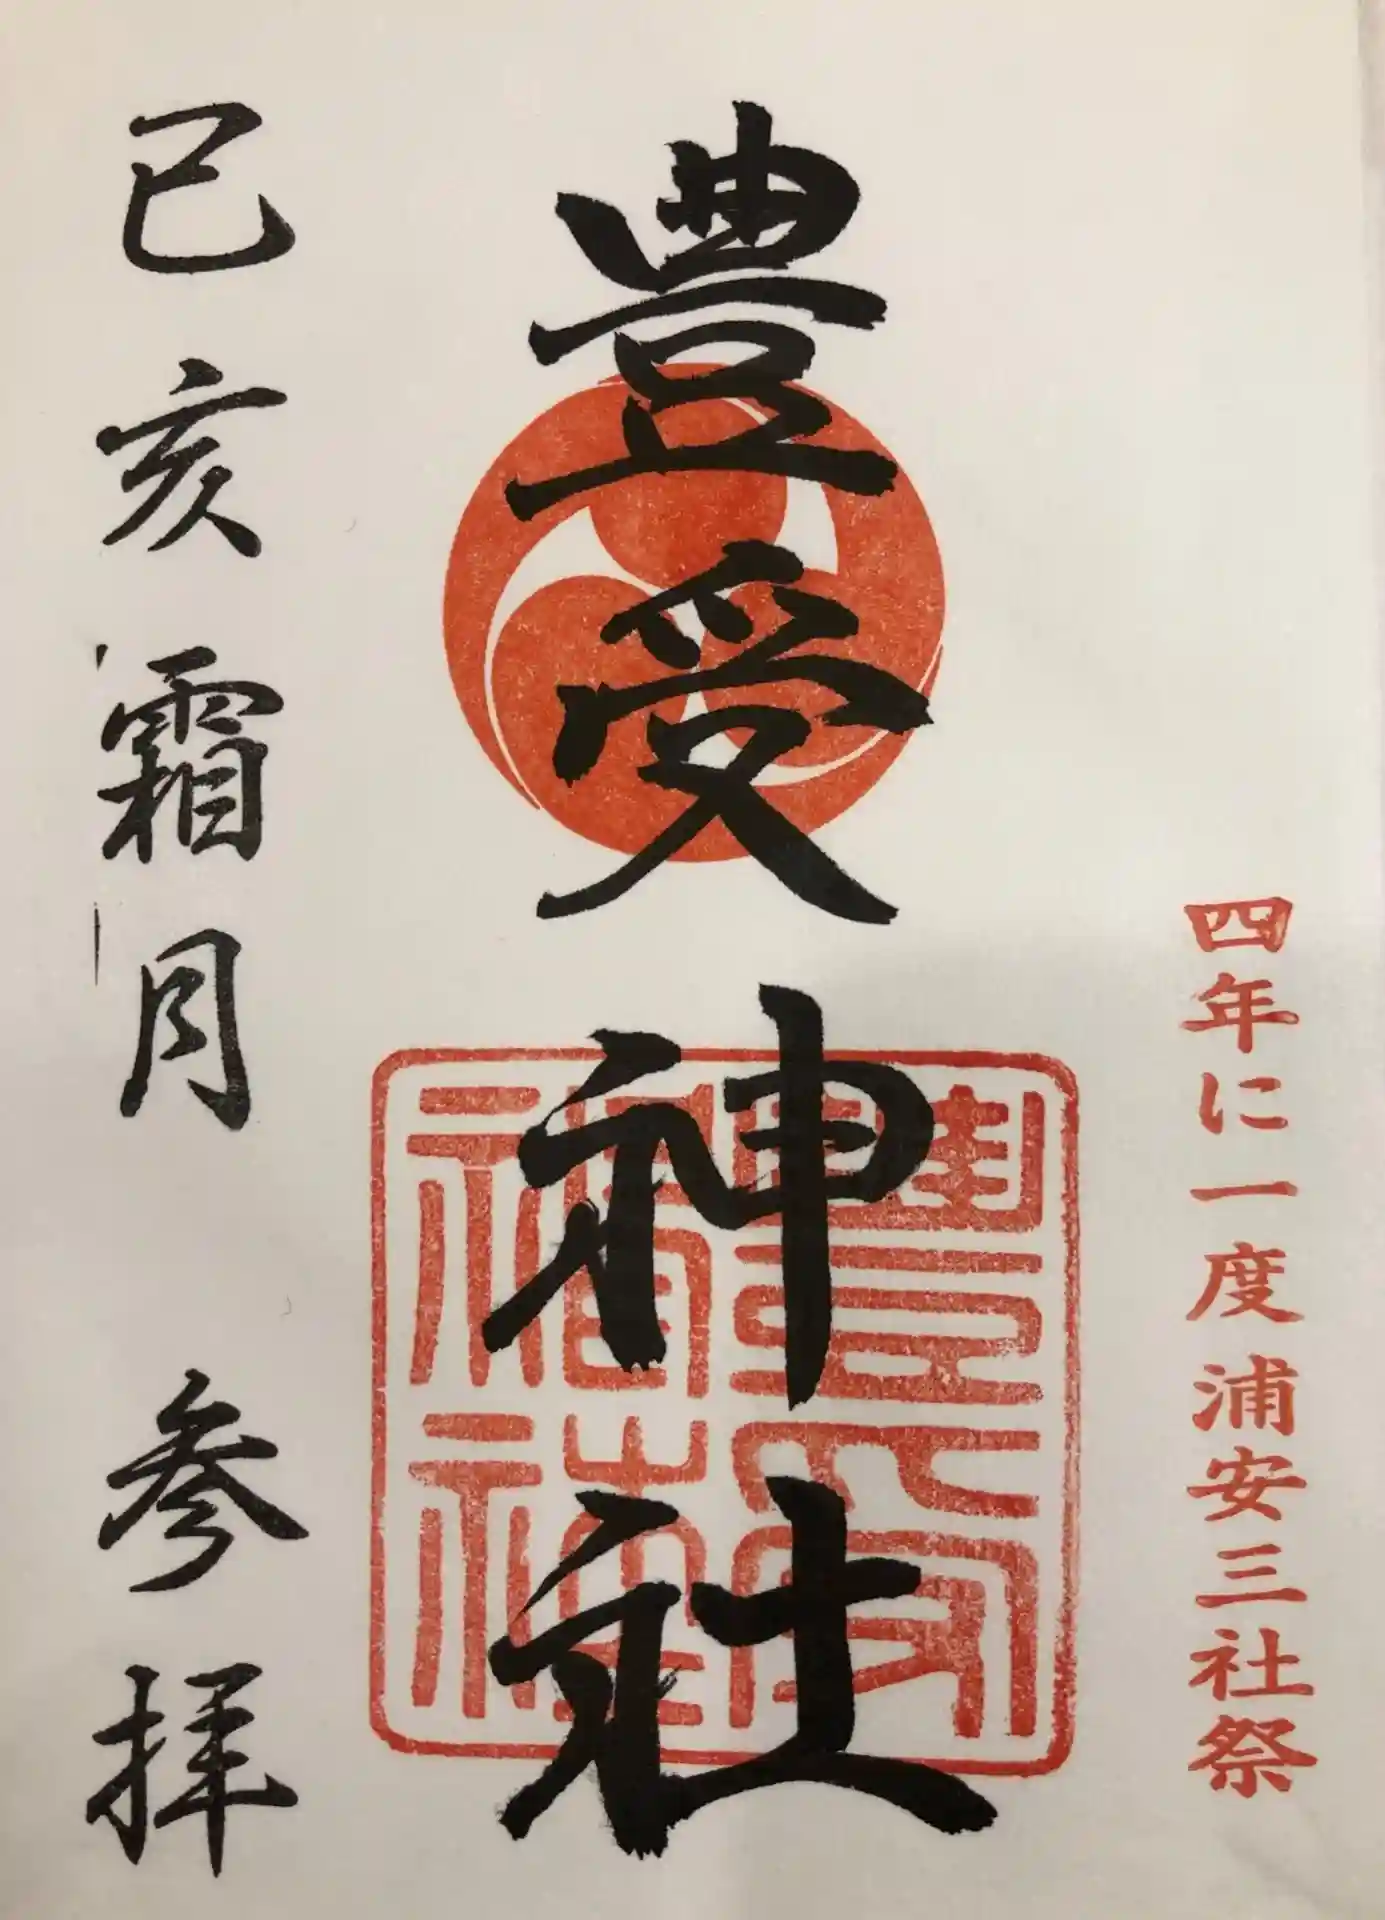 四年に一度浦安三社祭
豊受神社
己亥霜月 参拝